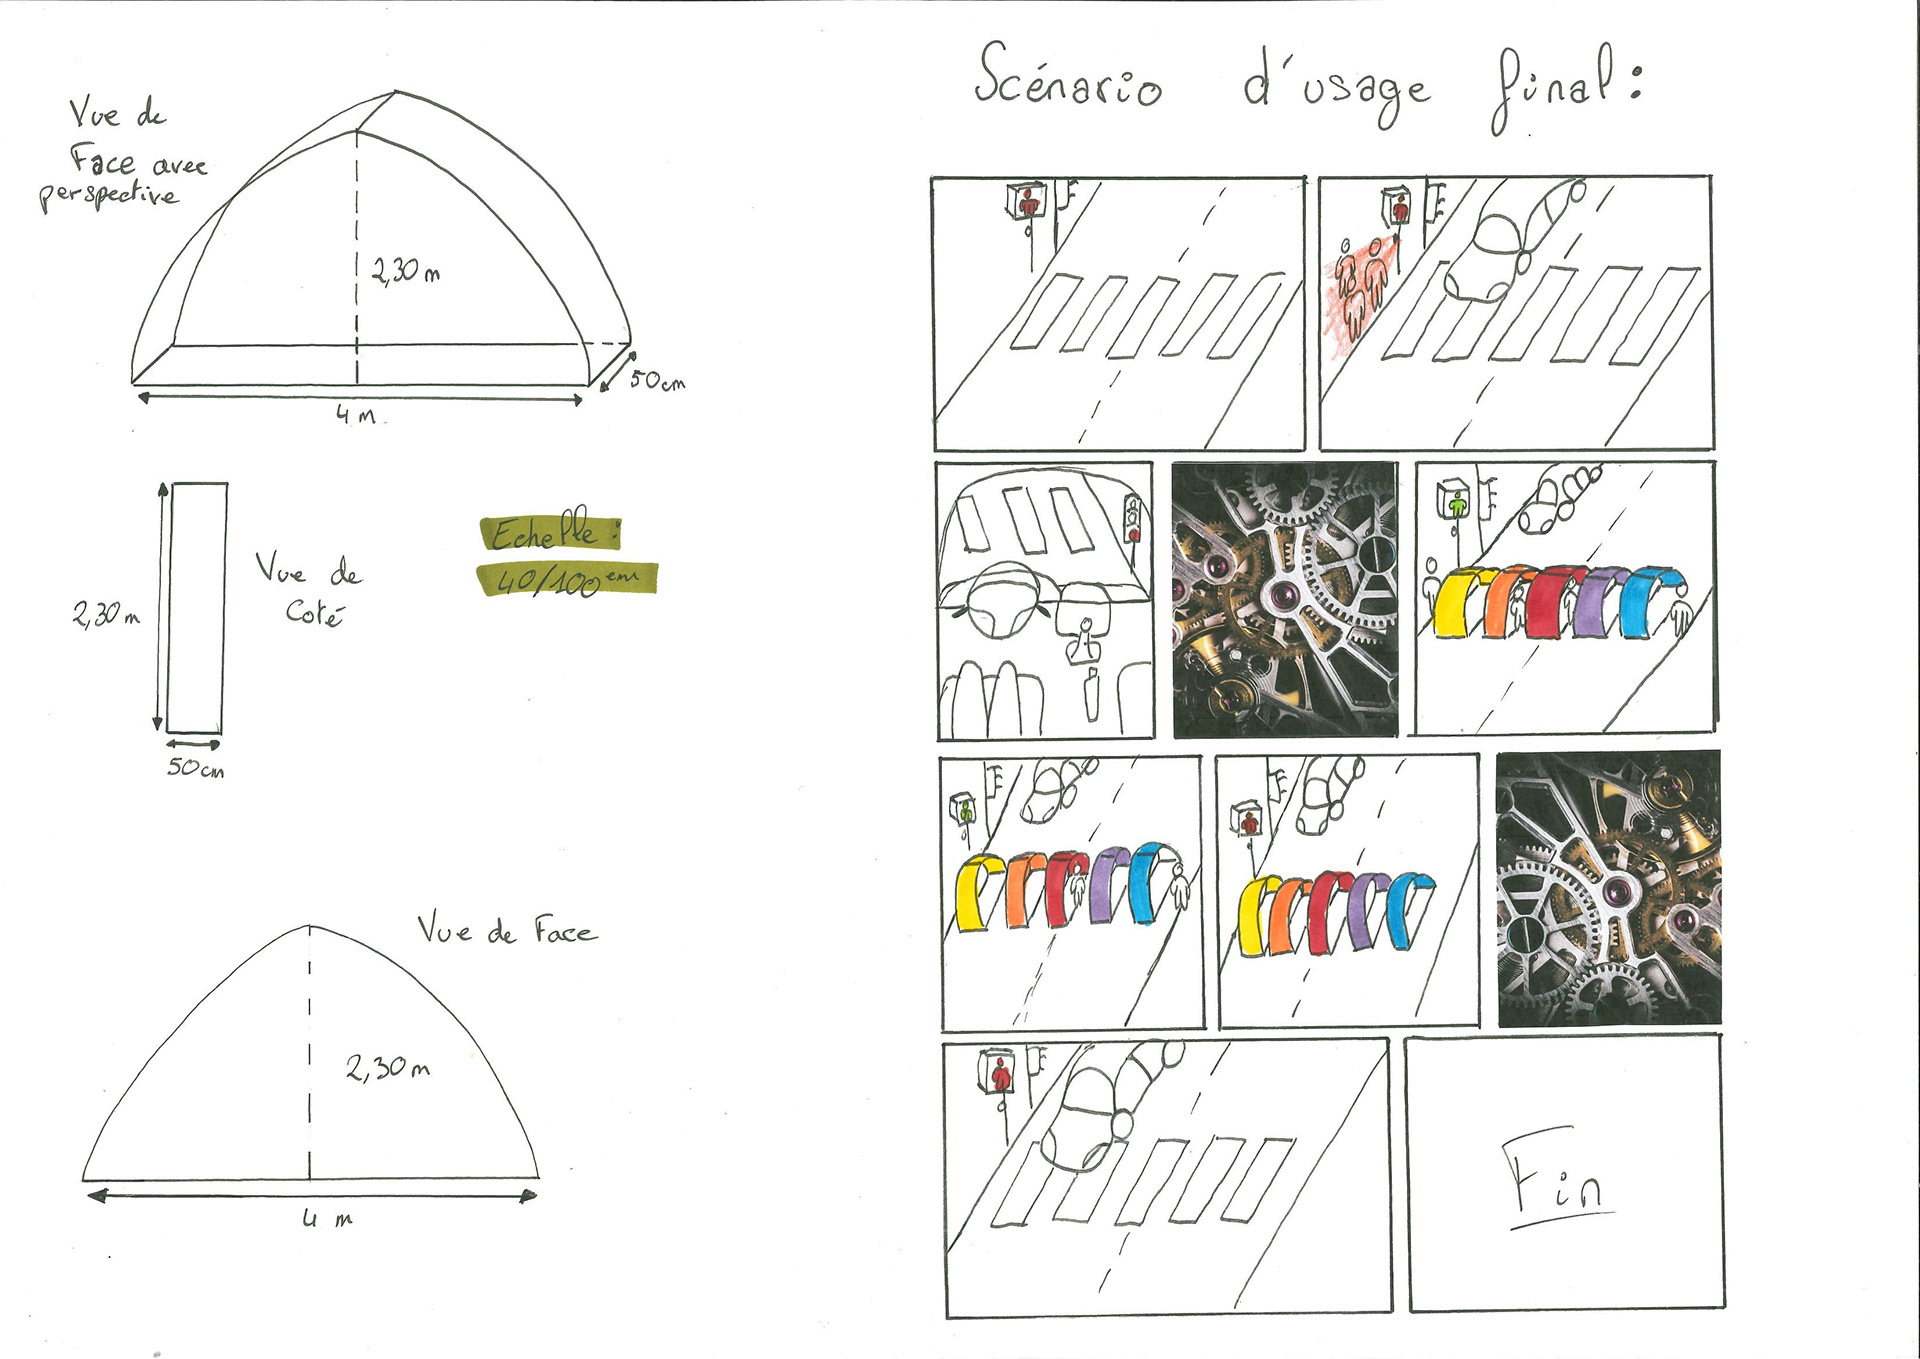 Vue de
Face avec
perspective
2,30 m
50cm
4 m
2,30 m
50cm
Vue de
Coté
Echelle :
40/100em
Vue de Face
2,30m
4 m
Scénario d'usage final :
Fin